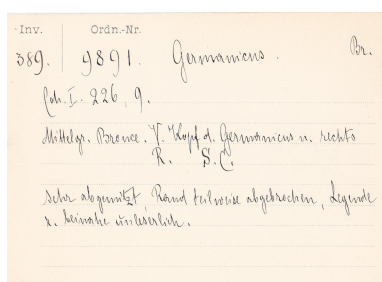 Inv. Ordn.-Nr.
389. 9891. Germanicus. Br.
Coh. I. 226, 9.
Mittelgr. Bronce. V. Kopf d. Germanicus n. rechts
R. S.C.
Sehr abgenützt, Rand teilweise abgebrochen, Legende
z. beinahe unleserlich.